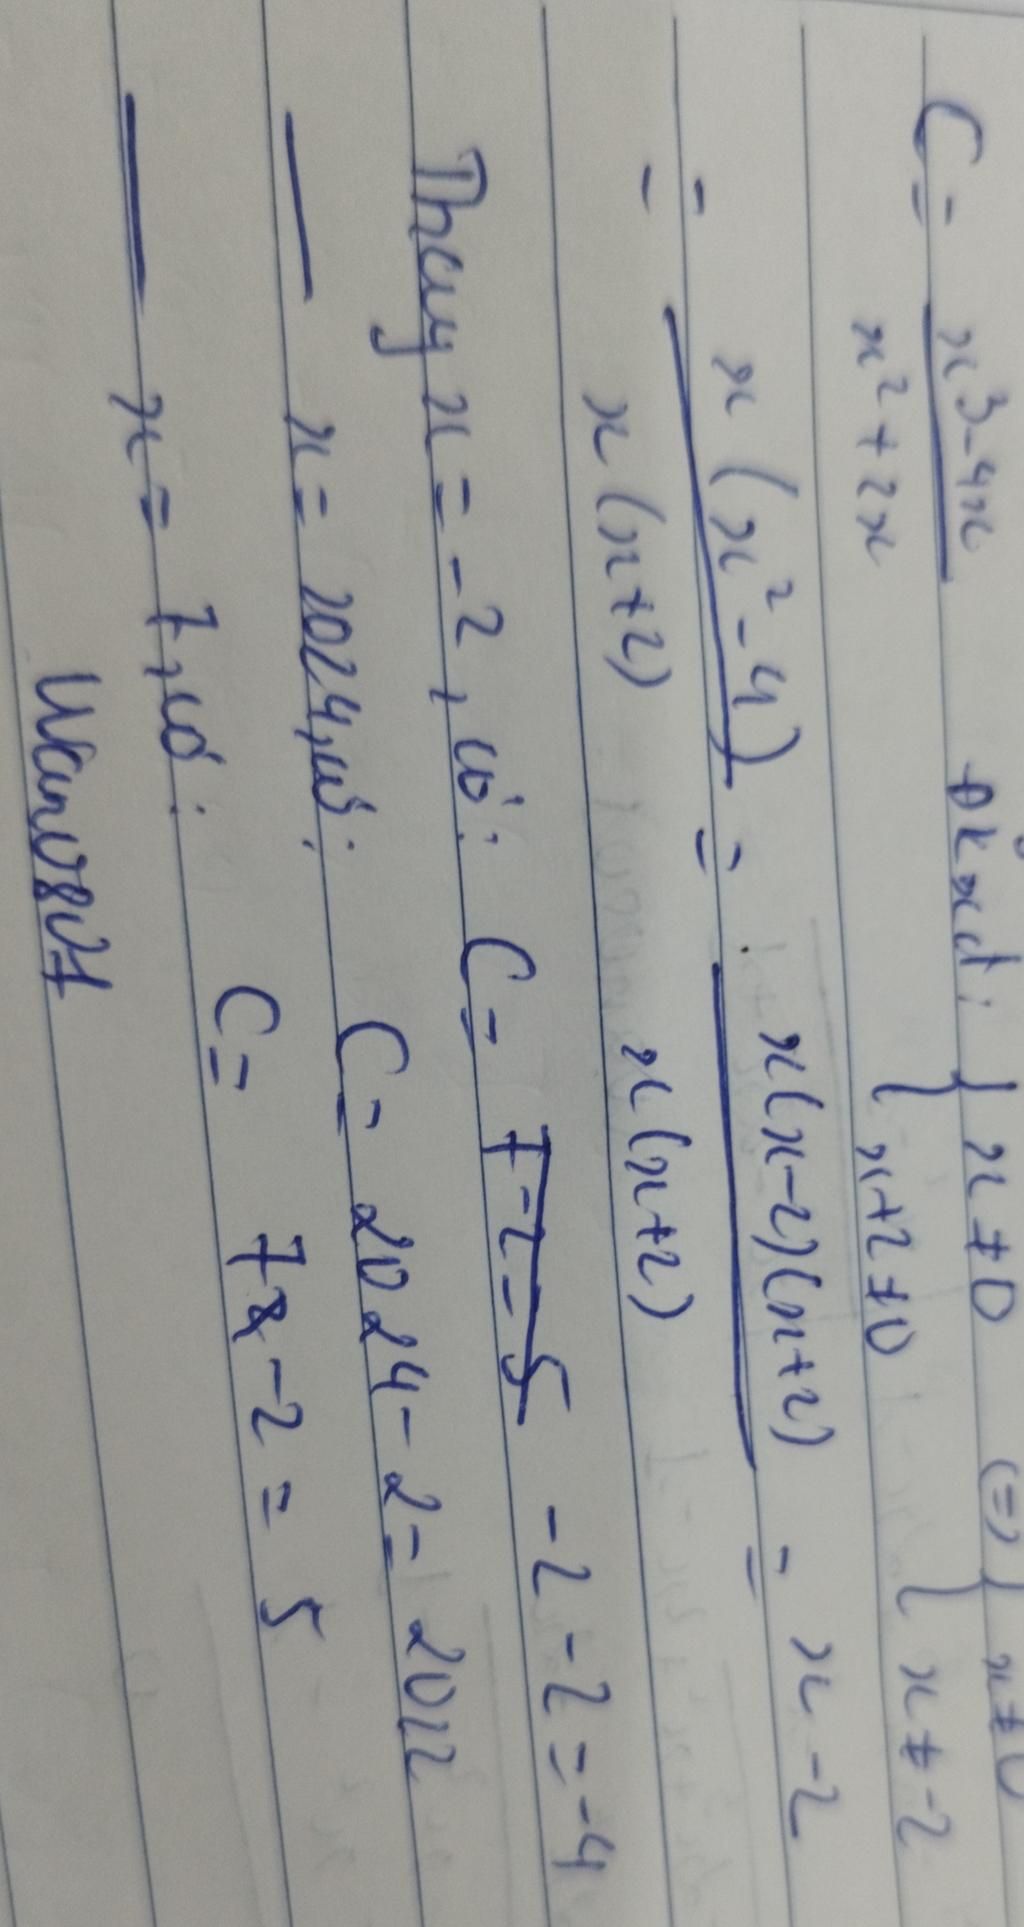 C = x³-4x / x²+2x đkxđ: { x ≠ 0 (=) { x ≠ 0
{ x+2 ≠ 0 { x ≠ -2
= x(x²-4) / x(x+2) = x(x-2)(x+2) / x(x+2) = x-2
=
Thay x = -2, có: C = 7-2=5 -2-2=-4
— x = 2024, có: C = 2024-2= 2022
— x = 7, có: C = 7x-2 = 5